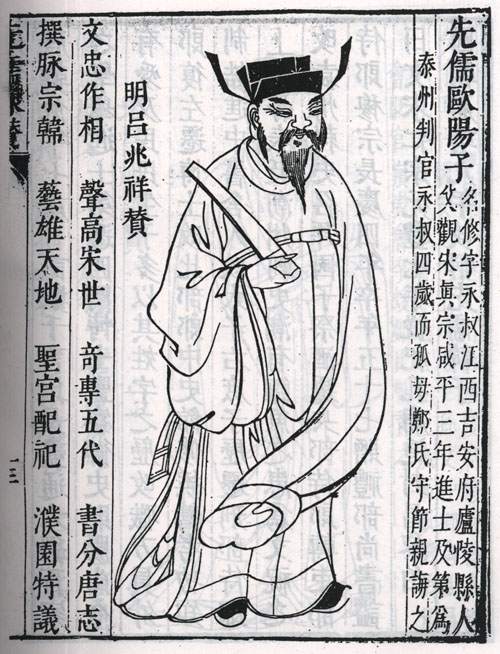 先儒歐陽子
名修字永叔江西吉安府廬陵縣人
父觀宋真宗咸平三年進士及第爲
泰州判官永叔四歲而孤母鄭氏守節親誨之
明呂兆祥賛
文忠作相 聲高宋世 竒專五代 書分唐志
撰脉宗韓 藝雄天地 聖宮配祀 濮園特議